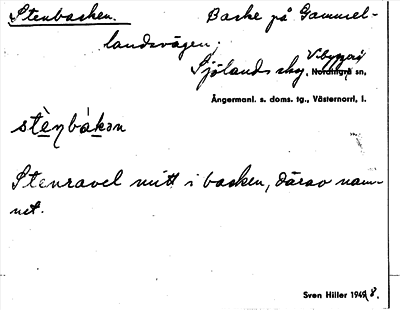 Stenbacken. Backe på Gammel-
landsvägen.
Sjölandsskog, Vibyggerå
Nordingrå sn,
Ångermanl. s. doms. tg., Västernorrl, l.
stèṇbàkən
Stenravel mitt i backen, därav nam-
net.
Sven Hiller 1948.